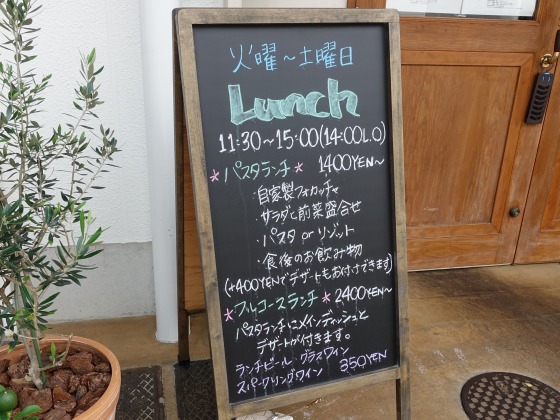 火曜～土曜日
Lunch
11:30～15:00(14:00L.O)
*パスタランチ* 1400YEN～
・自家製フォカッチャ
・サラダと前菜盛合せ
・パスタ or リゾット
・食後のお飲み物
(+400YENでデザートもお付けできます)
*フルコースランチ* 2400YEN～
パスタランチにメインディッシュと
デザートが付きます。
ランチビール・グラスワイン
スパークリングワイン 350YEN